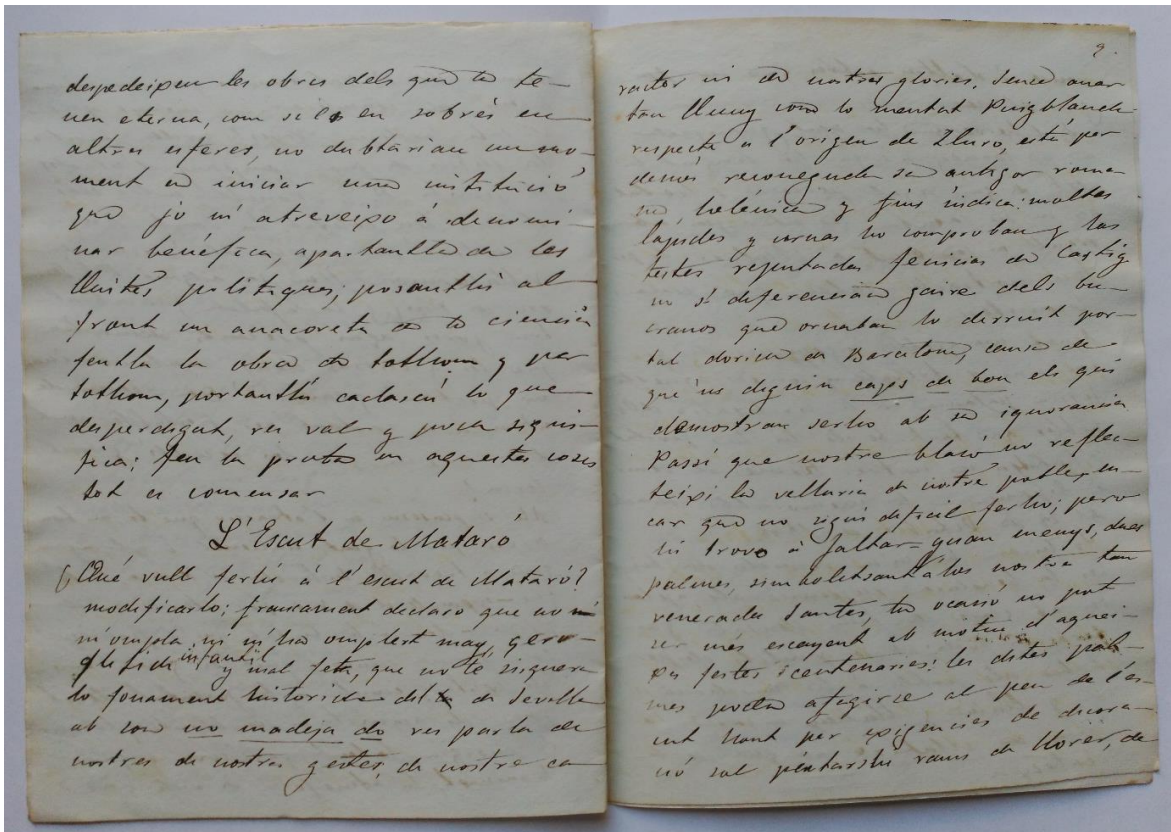 despedeixen les obres dels que la te-
nen eterna, com si els en sobrés en
altres esferes, no dubtarian un mo-
ment en iniciar una institució
que jo m'atreveixo á denomi
nar benéfica, apartantla de las
lluites politiques; posantli al
front un anacoreta de la ciencia
fentla la obra de tothom y per
tothom, portantli cadascú lo que
desperdigat, res val y poca signi-
fica; feu la proba en aquestas coses
tot es comensar
L'Escut de Mataró
¿Qué vull ferhi á l'escut de Mataró?
modificarlo; francament declaro que no
m'ompla, ni m'ha omplert may, gero-
glifich infantil y mal fet, que no té siquera
lo fonament historich del de Sevilla
ab son no madeja do res parla de
nostres de nostres gestes, de nostre ca
9.
racter ni de nostras glorias. Sense anar
tan lluny com lo mentat Puigblanch
respecte a l'origen de Iluro, está per
demés reconeguda sa antigor roma
na, helénica y fins indica: moltas
lapides y urnas ho comproban y las
testes reputadas fenicias de Castig
no s' diferencian gaire dels bu-
cranos que ornaban lo derruit por-
tal dorich de Barcelona, causa de
que 'ns diguin caps de bou els qui
demostran serho ab sa ignorancia
Passi que nostre blasó no reflec-
teixi la velluria de nostre poble, en-
car que no sigui dificil ferho; pero
hi trovo á faltar quan menys, dues
palmes, simbolitsant á las nostras tan
veneradas Santes, la ocasió no pot
ser més escayent ab motiu d'aquei-
xes festes centenaries: les dites pal-
mes poden afegirse al peu de l'es-
cut hont per exigencies de decora-
ció sol pintarshi rams de llorer, de